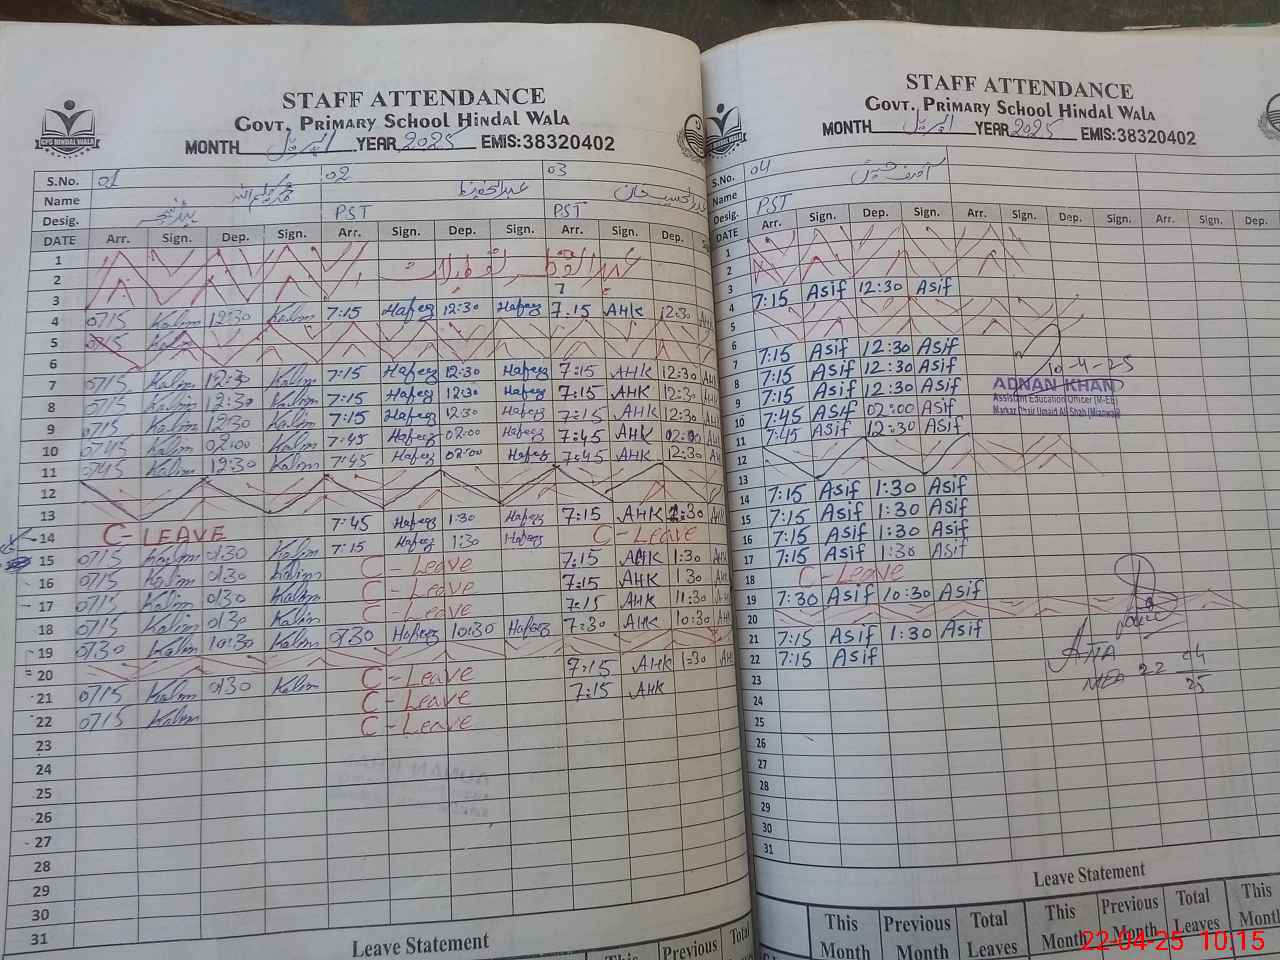 STAFF ATTENDANCE
GOVT. PRIMARY SCHOOL HINDAL WALA
MONTH اپریل YEAR 2025 EMIS:38320402
GPS HINDAL WALA
S.No. 01 02 03
Name محمد کلیم اللہ عبدالحفیظ
Desig. PST PST
DATE Arr. Sign. Dep. Sign. Arr. Sign. Dep. Sign. Arr. Sign. Dep.
1
2
3
4 0715 Kalim 12:30 Kalim 7:15 Hafeez 12:30 Hafeez 7:15 AHK 12:30 AHK
5 0715 Kalim
6
7 0715 Kalim 12:30 Kalim 7:15 Hafeez 12:30 Hafeez 7:15 AHK 12:30 AHK
8 0715 Kalim 12:30 Kalim 7:15 Hafeez 12:30 Hafeez 7:15 AHK 12:30 AHK
9 0715 Kalim 12:30 Kalim 7:15 Hafeez 12:30 Hafeez 7:15 AHK 12:30 AHK
10 0745 Kalim 02:00 Kalim 7:45 Hafeez 02:00 Hafeez 7:45 AHK 02:00 AHK
11 0745 Kalim 12:30 Kalim 7:45 Hafeez 02:00 Hafeez 7:45 AHK 12:30 AHK
12
13
14 C-LEAVE 7:45 Hafeez 1:30 Hafeez 7:15 AHK 1:30 AHK
15 0715 Kalim 0130 Kalim 7:15 Hafeez 1:30 Hafeez C-Leave
16 0715 Kalim 0130 Kalim C-Leave 7:15 AHK 1:30 AHK
17 0715 Kalim 0130 Kalim C-Leave 7:15 AHK 1 30 AHK
18 0715 Kalim 0130 Kalim C-Leave 7:15 AHK 11:30 AHK
19 0730 Kalim 10:30 Kalim 0730 Hafeez 10:30 Hafeez 7:30 AHK 10:30 AHK
20
21 0715 Kalim 0130 Kalim C-Leave 7:15 AHK 1:30 AHK
22 0715 Kalim C-Leave 7:15 AHK
C-Leave
23
24
25
26
27
28
29
30
31
Leave Statement
This Previous Total
STAFF ATTENDANCE
GOVT. PRIMARY SCHOOL HINDAL WALA
MONTH اپریل YEAR 2025 EMIS:38320402
S.No. 04
Name آصف حسین
Desig. PST
DATE Arr. Sign. Dep. Sign. Arr. Sign. Dep. Sign. Arr. Sign. Dep.
1
2
3
4 7:15 Asif 12:30 Asif
5
6
7 7:15 Asif 12:30 Asif
8 7:15 Asif 12:30 Asif
9 7:15 Asif 12:30 Asif
10 7:45 Asif 02:00 Asif
11 7:45 Asif 12:30 Asif
10-4-25
ADNAN KHAN
Assistant Education Officer (M-EE)
Markaz Thair Umaid Ali Shah (Mianwali)
12
13
14 7:15 Asif 1:30 Asif
15 7:15 Asif 1:30 Asif
16 7:15 Asif 1:30 Asif
17 7:15 Asif 1:30 Asif
18 C-Leave
19 7:30 Asif 10:30 Asif
20
21 7:15 Asif 1:30 Asif
22 7:15 Asif
ATTA
MEA 22 04
25
23
24
25
26
27
28
29
30
31
Leave Statement
This Month Previous Month Total Leaves This Month Previous Month Total Leaves This Month
22-04-25 10:15